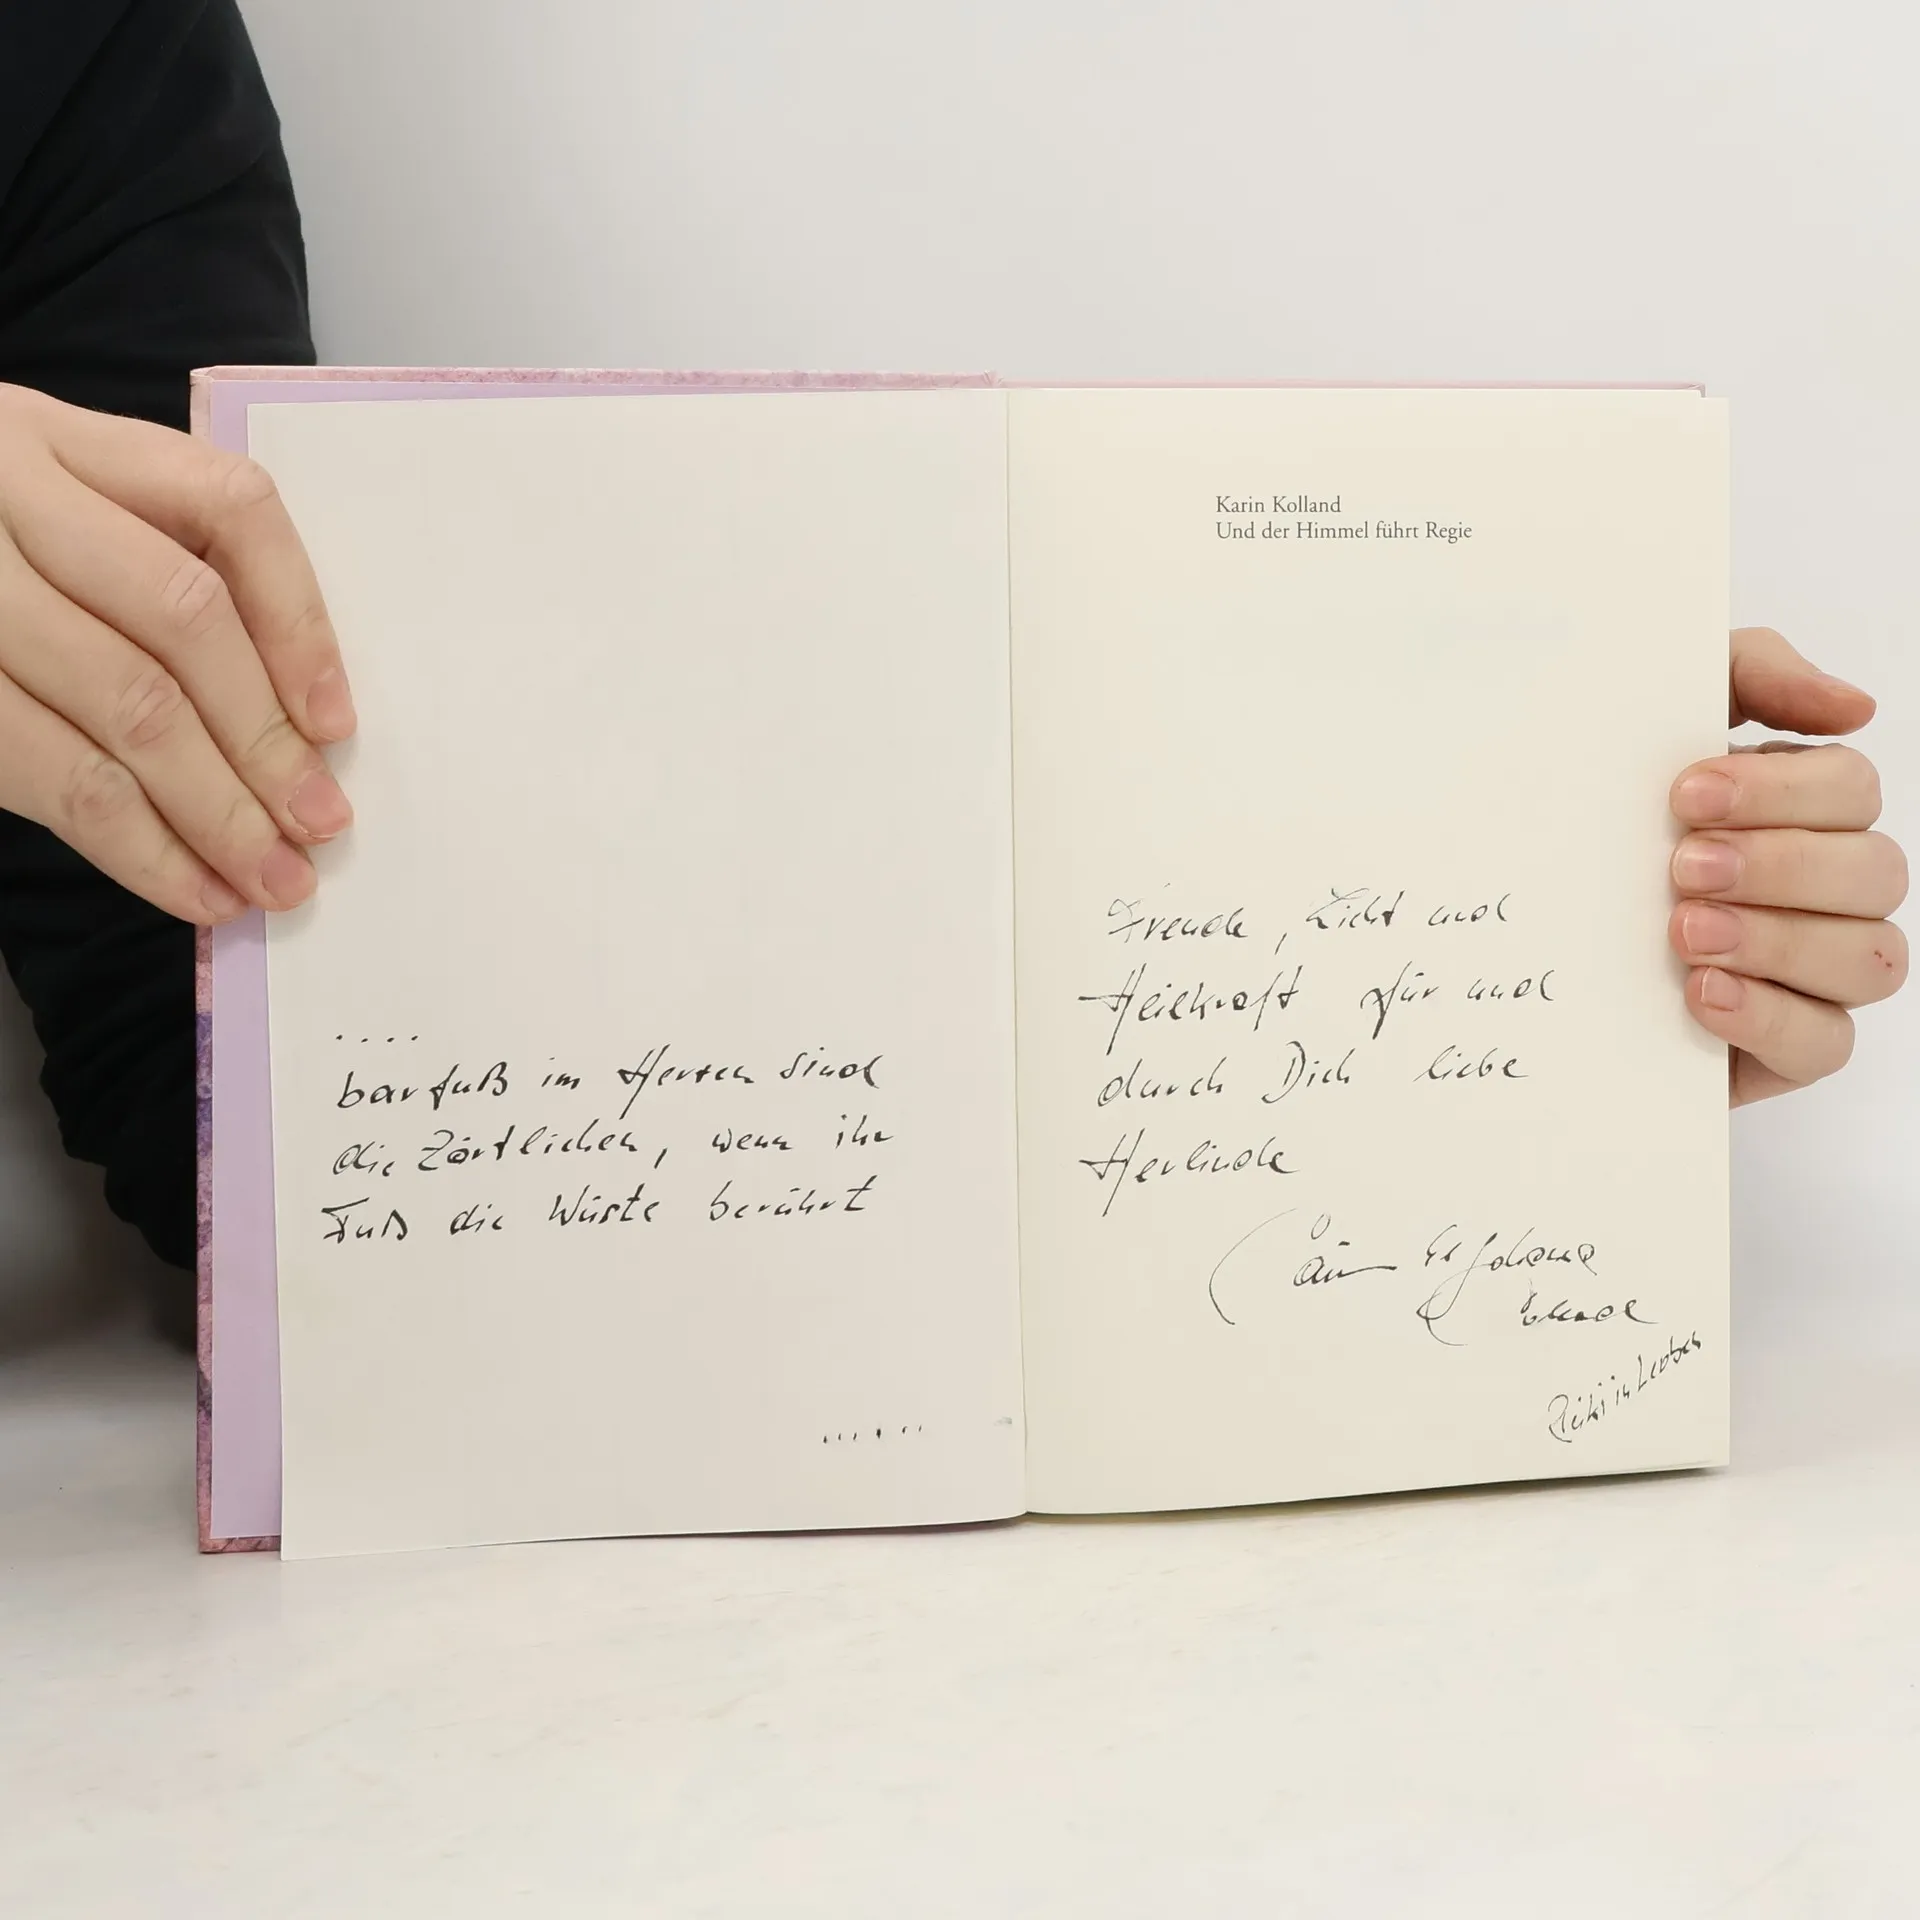 ....
barfuß im Herzen sind
die Zärtlichen, wenn ihr
Fuß die Wüste berührt
......
Karin Kolland
Und der Himmel führt Regie
Freude, Licht und
Heilkraft für und
durch Dich liebe
Herlinde
Reiki in Leoben